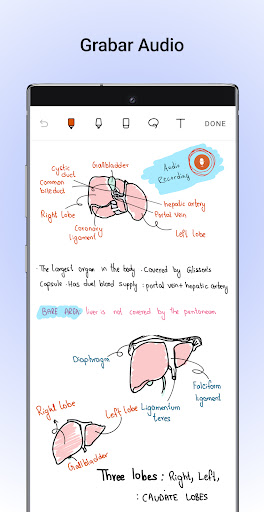 Grabar Audio
T DONE
Cystic duct
Gallbladder
Common bile duct
Audio Recording
Right lobe
hepatic artery
Portal vein
Coronary ligament
Left lobe
· The largest organ in the body · Covered by Glisson's
Capsule · Has duel blood supply : portal vein + hepatic artery
BARE AREA: liver is not covered by the peritoneum
Diaphragm
Falciform ligament
Right lobe
Left lobe
Ligamentum teres
Gallbladder
Three lobes : Right, Left,
: CAUDATE LOBES